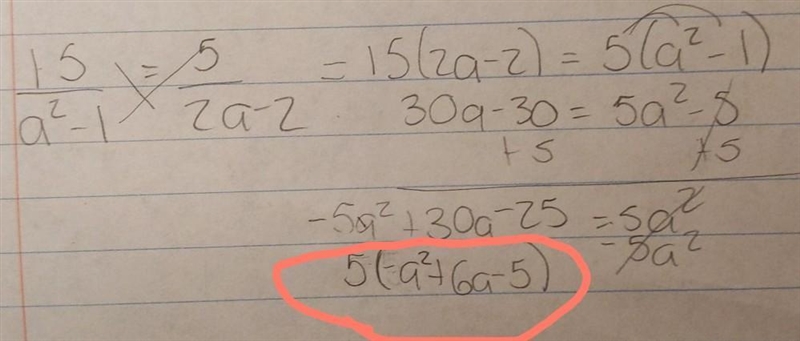 15/(a²-1) = 5/(2a-2) = 15(2a-2) = 5(a²-1)
30a-30 = 5a²-5
+5 +5
-5a²+30a-25 = 5a²
-5a²
5(-a²+6a-5)